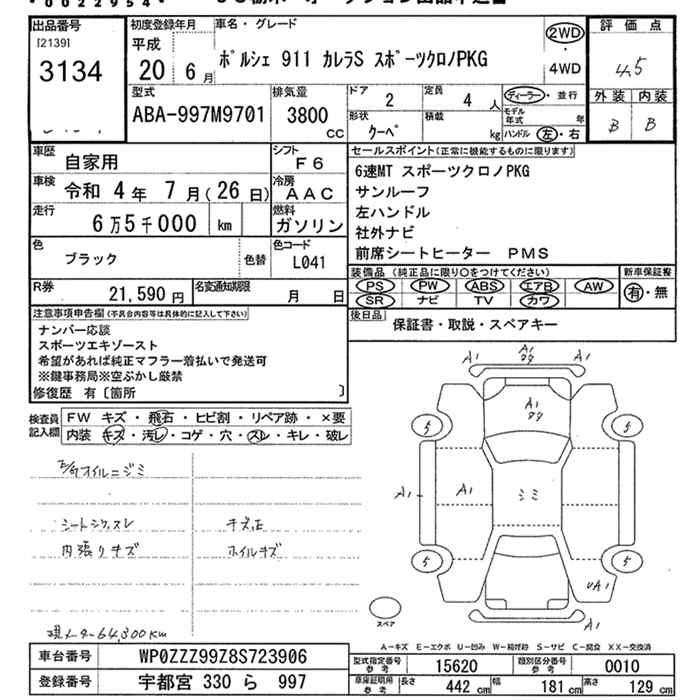 0022954
出品番号 初度登録年月 車名・グレード 評価点
[2139] 平成 2WD
3134 20 6月 ポルシェ 911 カレラS スポーツクロノPKG 4WD 4.5
型式 排気量 ドア 2 定員 4 人 ディーラー・並行 外装 内装
ABA-997M9701 3800 cc 形状 クーペ 積載 kg モデル年式 年 ハンドル 左・右 B B
車歴 自家用 シフト F6 セールスポイント(正常に機能するものに限ります)
車検 令和 4年 7月(26日) 冷房 AAC 6速MT スポーツクロノPKG
サンルーフ
走行 6万5千000 km 燃料 ガソリン 左ハンドル
社外ナビ
色 ブラック 色替 色コード L041 前席シートヒーター PMS
装備品 (純正品に限り○をつけてください) 新車保証書
R券 21,590円 名変通知期限 月 日 PS PW ABS エアB AW 有・無
SR ナビ TV カワ
注意事項申告欄(不具合内容等は具体的に記入して下さい) 後日品 保証書・取説・スペアキー
ナンバー応談
スポーツエキゾースト
希望があれば純正マフラー着払いで発送可
※鍵事務局※空ぶかし厳禁
修復歴 有〔箇所 〕
検査員記入欄 FW キズ・飛石・ヒビ割・リペア跡・×要
内装 キズ・汚レ・コゲ・穴・スレ・キレ・破レ
A1 A1 A1
A1
5 5
オイルニジミ
A1 A1 シミ
シートシワ、スレ
内張りキズ ホイルキズ
5 5
UA1
スペア
現メーター64,300KM A1
A=キズ E=エクボ U=凹み W=補修跡 S=サビ C=腐食 XX=交換済
車台番号 WP0ZZZ99Z8S723906 型式指定番号 参考 15620 類別区分番号 参考 0010
登録番号 宇都宮 330 ら 997 車庫証明用 参考 長さ 442 cm 幅 181 cm 高さ 129 cm